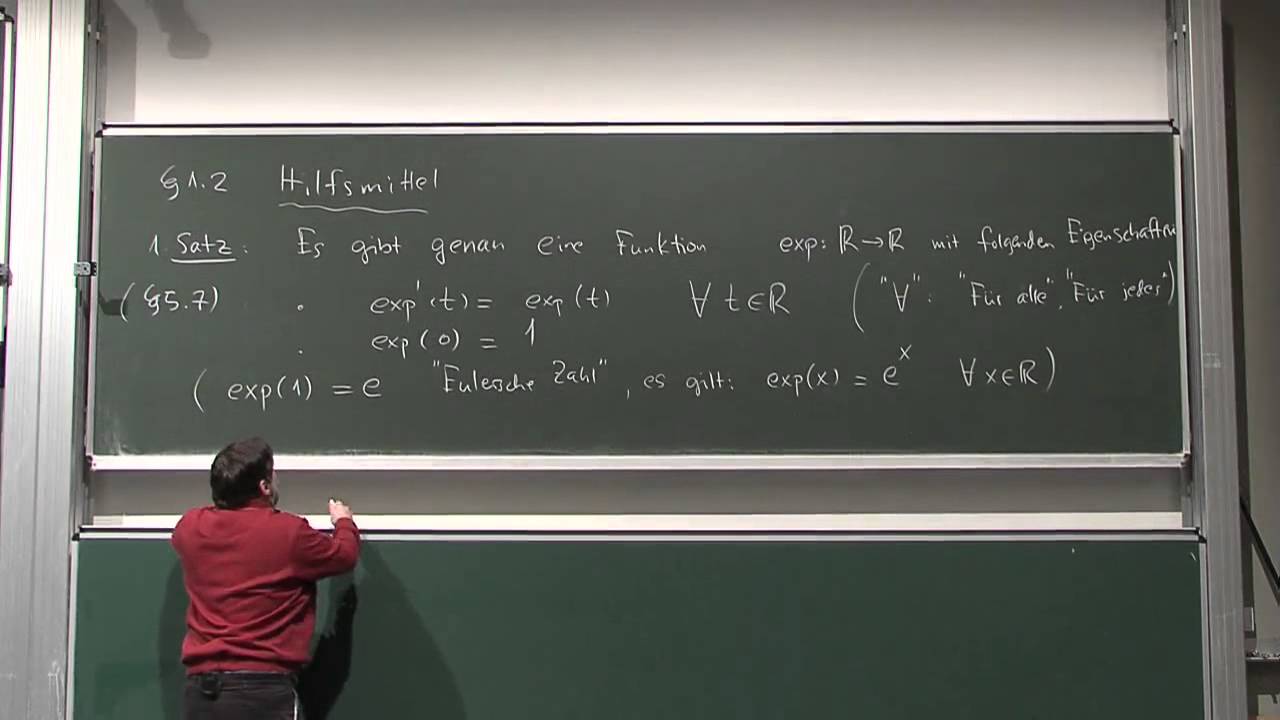 §1.2 Hilfsmittel
1. Satz: Es gibt genau eine Funktion exp: ℝ→ℝ mit folgenden Eigenschaften
(§5.7) • exp'(t) = exp(t) ∀ t∈ℝ ("∀": "Für alle", "Für jedes")
• exp(0) = 1
(exp(1) = e "Eulersche Zahl", es gilt: exp(x) = eˣ ∀ x∈ℝ)